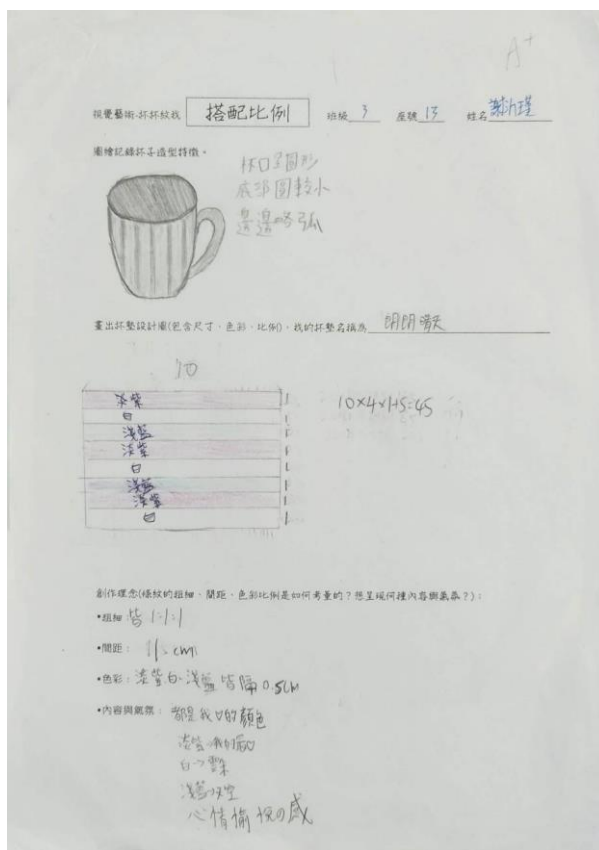 A+
視覺藝術-杯杯紋我 搭配比例 班級 3 座號 13 姓名
圖繪記錄杯子造型特徵。
杯口呈圓形
底部圓較小
邊邊略弧
畫出杯墊設計圖(包含尺寸、色彩、比例)，我的杯墊名稱為
10
淡紫
白
淺藍
淡紫
白
淺藍
淡紫
白
創作理念(條紋的粗細、間距、色彩比例是如何考量的？想呈現何種內容與氣氛？)：
•粗細 皆 1:1:1
•間距： cm
•色彩：淡紫、白、淺藍 皆隔 0.5cm
•內容與氣氛： 都是我♡的顏色
白→雲朵
淺藍→天空
心情愉悅の感